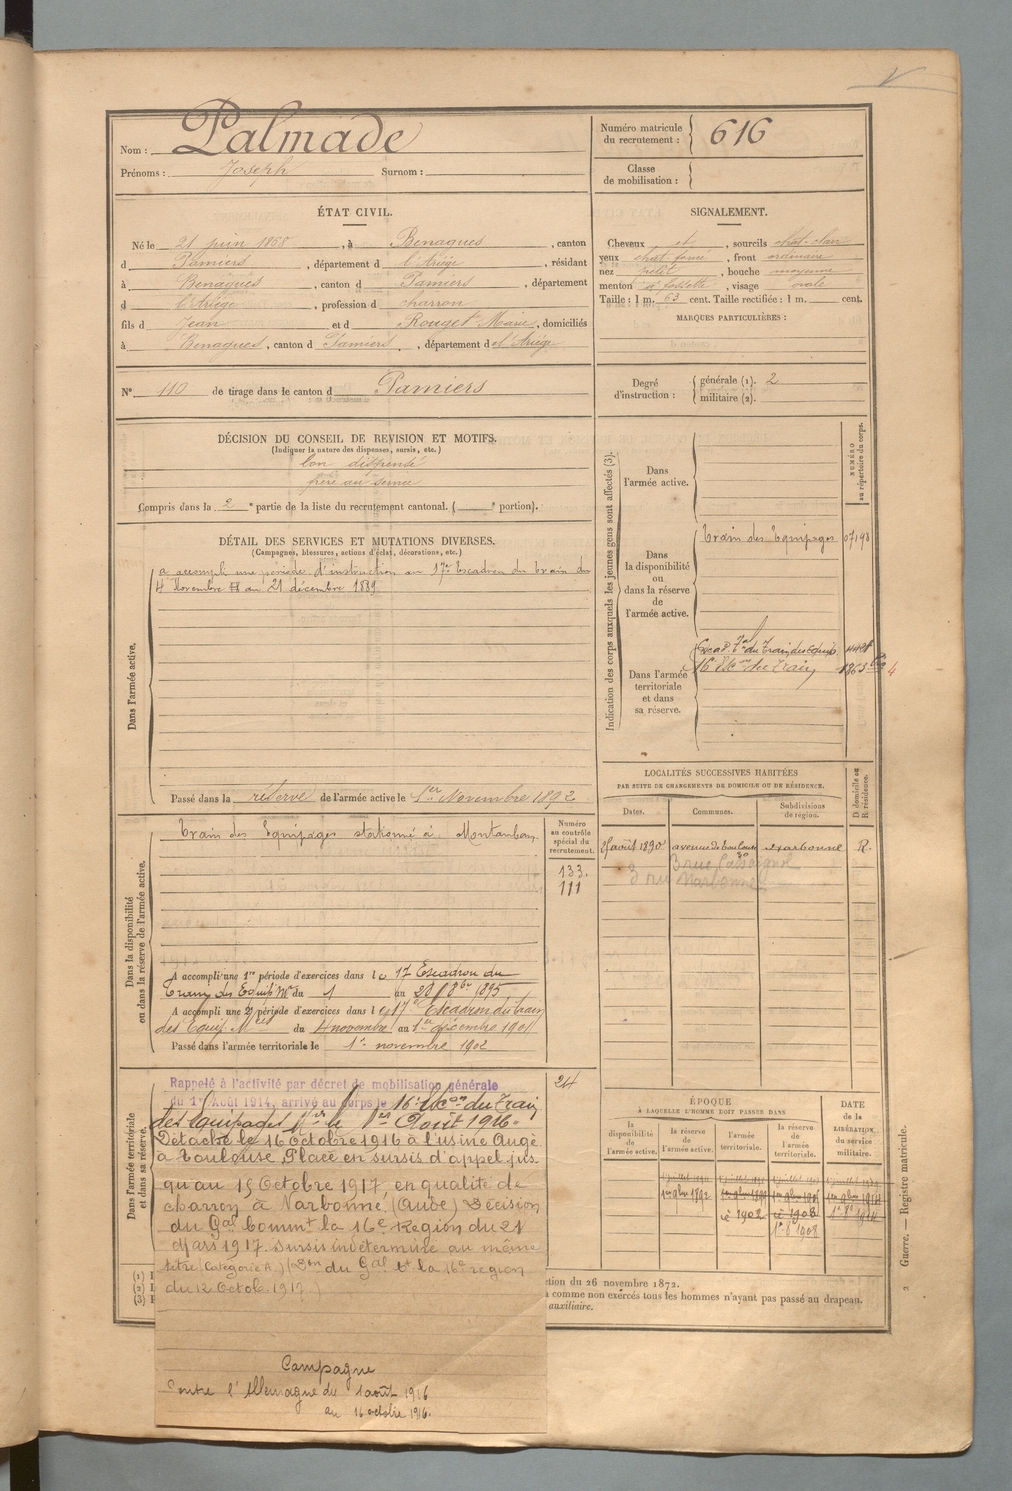 Nom : Palmade
Prénoms : Joseph Surnom :
Numéro matricule du recrutement : 616
Classe de mobilisation :
ÉTAT CIVIL.
Né le 21 juin 1868, à Benagues, canton
d Pamiers, département d l'Ariége, résidant
à Benagues, canton d Pamiers, département
d l'Ariége, profession d charron
fils d Jean et d Rouget Marie, domiciliés
à Benagues, canton d Pamiers, département d el'Ariége
N° 110 de tirage dans le canton d Pamiers
SIGNALEMENT.
Cheveux et, sourcils chat. clair
yeux chat foncé, front ordinaire
nez petit, bouche moyenne
menton à fossette, visage ovale
Taille : 1 m. 63 cent. Taille rectifiée : 1 m. cent.
MARQUES PARTICULIÈRES :
Degré d'instruction : générale (1). 2
militaire (2).
DÉCISION DU CONSEIL DE REVISION ET MOTIFS.
(Indiquer la nature des dispenses, sursis, etc.)
bon dispensé
frère au service
Compris dans la 2e partie de la liste du recrutement cantonal. ( e portion).
DÉTAIL DES SERVICES ET MUTATIONS DIVERSES.
(Campagnes, blessures, actions d'éclat, décorations, etc.)
Dans l'armée active.
a accompli une période d'instruction au 17e Escadron du train du
4 Novembre au 21 décembre 1889
Passé dans la réserve de l'armée active le 1er Novembre 1892
Indication des corps auxquels les jeunes gens sont affectés (3).
NUMÉRO au répertoire du corps.
Dans l'armée active.
Dans la disponibilité ou dans la réserve de l'armée active.
Train des Equipages
Dans l'armée territoriale et dans sa réserve.
16e du Train
LOCALITÉS SUCCESSIVES HABITÉES
PAR SUITE DE CHANGEMENTS DE DOMICILE OU DE RÉSIDENCE.
Dates. Communes. Subdivisions de région. D domicile ou R résidence.
août 1890 avenue de Toulouse Narbonne R.
3 rue Cassaignol
3 rue Narbonne
Dans la disponibilité ou dans la réserve de l'armée active.
Train des Equipages stationné à Montauban
Numéro au contrôle spécial du recrutement.
133.
111
A accompli une 1re période d'exercices dans l e 17 Escadron du
Train des Equip. Mres du 1 au 28 8bre 1895
A accompli une 2e période d'exercices dans l e 17e Escadron du train
des Equip. Mres du 4 novembre au 1er décembre 1901
Passé dans l'armée territoriale le 1er novembre 1902
Dans l'armée territoriale et dans sa réserve.
24
Rappelé à l'activité par décret de mobilisation générale
du 1er Août 1914, arrivé au corps le 16e du Train
des Equipages le 1er Août 1916.
Détaché le 16 Octobre 1916 à l'usine Augé
à Toulouse. Placé en sursis d'appel jus-
qu'au 15 Octobre 1917, en qualité de
charron à Narbonne (Aude) Décision
du Gal Commt la 16e Région du 21
Mars 1917. Sursis indéterminé au même
titre (Catégorie A.) (Don du Gal Ct la 16e région
du 12 Octob. 1917.)
Campagne
Contre l'Allemagne du 1 août 1916
au 16 octobre 1916.
ÉPOQUE
À LAQUELLE L'HOMME DOIT PASSER DANS
la disponibilité de l'armée active.
la réserve de l'armée active.
l'armée territoriale.
la réserve de l'armée territoriale.
DATE de la LIBÉRATION du service militaire.
1er 9bre 1892
1902
1908
(1)
(2)
(3)
tion du 26 novembre 1872.
comme non exercés tous les hommes n'ayant pas passé au drapeau.
auxiliaire.
2 Guerre. — Registre matricule.